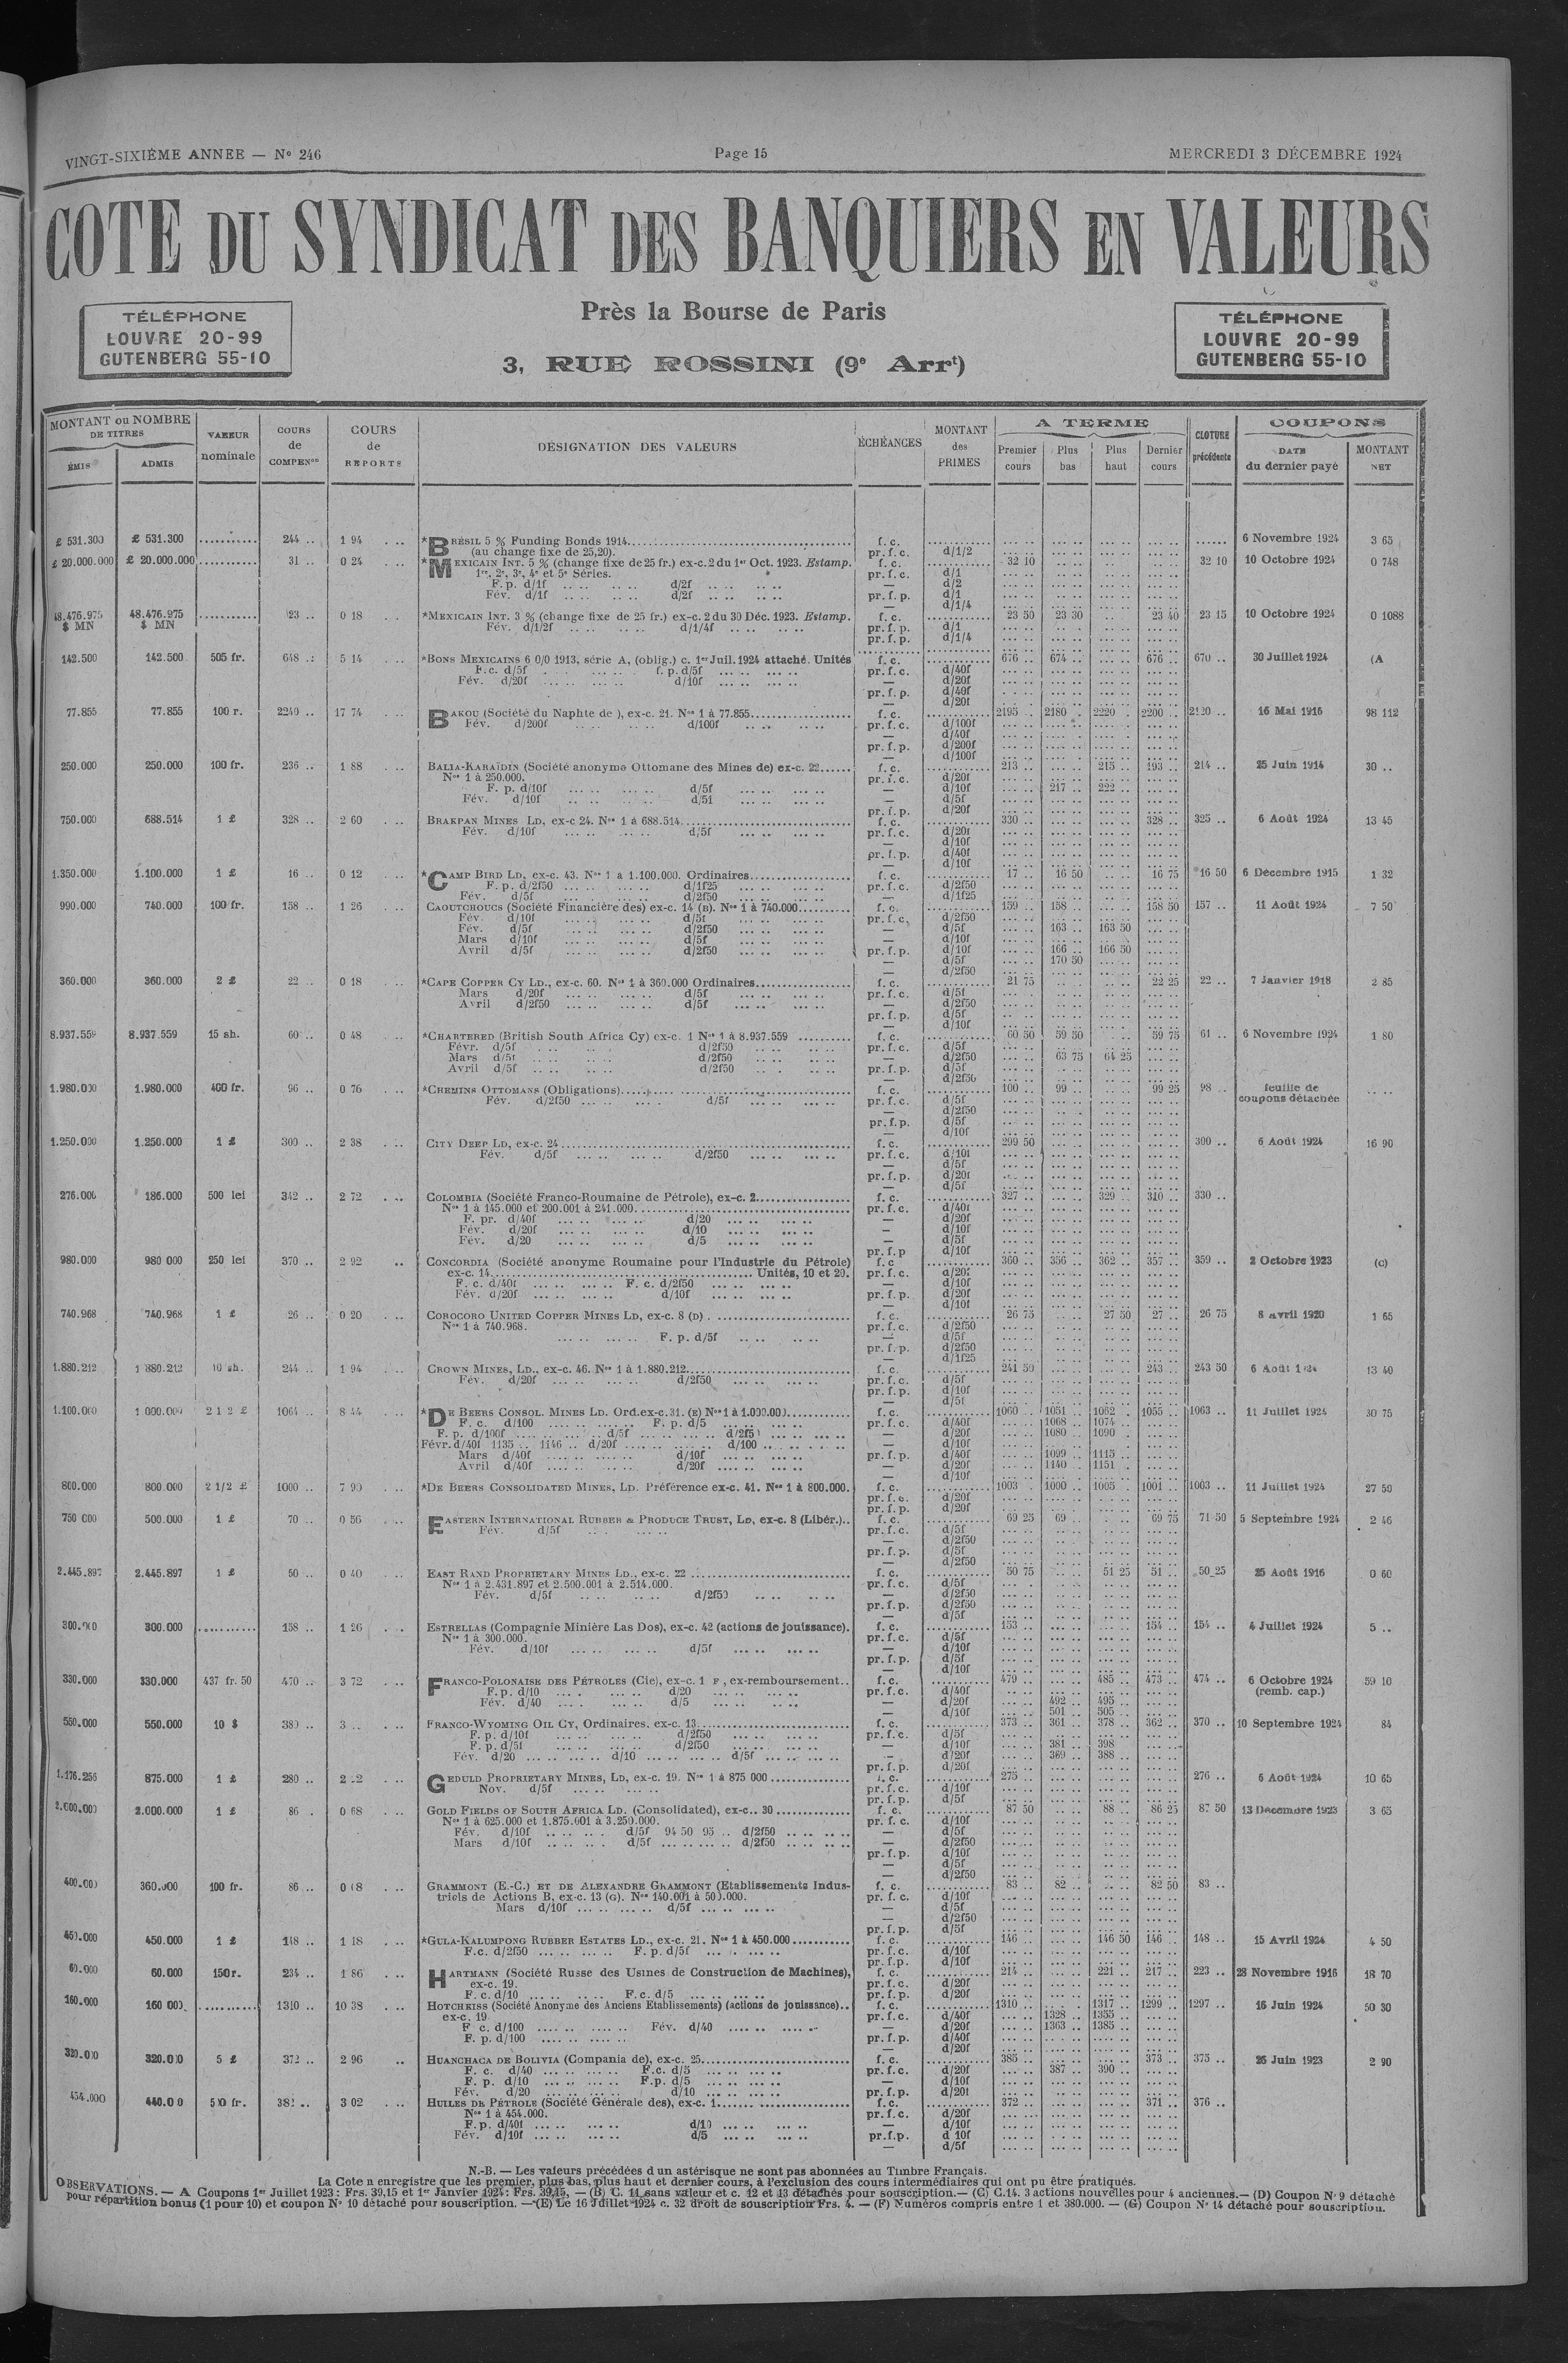 VINGT-SIXIÈME ANNEE — N° 246 Page 15 MERCREDI 3 DÉCEMBRE 1924
COTE DU SYNDICAT DES BANQUIERS EN VALEURS
TÉLÉPHONE
LOUVRE 20-99
GUTENBERG 55-10
Près la Bourse de Paris
3, RUE ROSSINI (9e Arrt)
TÉLÉPHONE
LOUVRE 20-99
GUTENBERG 55-10
MONTANT ou NOMBRE DE TITRES
ÉMIS ADMIS
VALEUR nominale
COURS de COMPENon
COURS de REPORTS
DÉSIGNATION DES VALEURS
ÉCHÉANCES
MONTANT des PRIMES
A TERME
Premier cours Plus bas Plus haut Dernier cours
CLOTURE précédente
COUPONS
DATE du dernier payé MONTANT NET
£ 531.300 £ 531.300 ........... 244 .. 1 94 *BRÉSIL 5 % Funding Bonds 1914 f. c. 6 Novembre 1924 3 65
(au change fixe de 25,20). pr. f. c. d/1/2
£ 20.000.000 £ 20.000.000 ........... 31 .. 0 24 *MEXICAIN INT. 5 % (change fixe de 25 fr.) ex-c. 2 du 1er Oct. 1923. Estamp. f. c. 32 10 32 10 10 Octobre 1924 0 748
1re, 2e, 3e, 4e et 5e Séries. pr. f. c. d/1
F. p. d/1f d/2f — d/2
Fév. d/1f d/2f pr. f. p. d/1
— d/1/4
48.476.975 $ MN 48.476.975 $ MN ........... 23 .. 0 18 *MEXICAIN INT. 3 % (change fixe de 25 fr.) ex-c. 2 du 30 Déc. 1923. Estamp. f. c. 23 50 23 30 23 40 23 15 10 Octobre 1924 0 1088
Fév. d/1/2f d/1/4f pr. f. p. d/1
pr. f. p. d/1/4
142.500 142.500 505 fr. 648 .. 5 14 *BONS MEXICAINS 6 0/0 1913, série A, (oblig.) c. 1er Juil. 1924 attaché. Unités f. c. 676 .. 674 .. 676 .. 670 .. 30 Juillet 1924 (A
F. c. d/5f f. p. d/5f pr. f. c. d/40f
Fév. d/20f d/10f — d/20f
pr. f. p. d/40f
— d/20f
77.855 77.855 100 r. 2240 .. 17 74 BAKOU (Société du Naphte de), ex-c. 21. Nos 1 à 77.855 f. c. 2195 2180 2220 2200 .. 2120 .. 16 Mai 1916 98 112
Fév. d/200f d/100f pr. f. c. d/100f
— d/40f
pr. f. p. d/200f
— d/100f
250.000 250.000 100 fr. 236 .. 1 88 BALIA-KARAÏDIN (Société anonyme Ottomane des Mines de) ex-c. 22 f. c. 213 .. 215 .. 193 .. 214 .. 25 Juin 1914 30 ..
Nos 1 à 250.000. pr. f. c. d/20f
F. p. d/10f d/5f — d/10f 217 .. 222 ..
Fév. d/10f d/5f — d/5f
pr. f. p. d/20f
750.000 688.514 1 £ 328 .. 2 60 BRAKPAN MINES LD, ex-c 24. Nos 1 à 688.514 f. c. 330 .. 328 .. 325 .. 6 Août 1924 13 45
Fév. d/10f d/5f pr. f. c. d/20f
— d/10f
pr. f. p. d/40f
— d/10f
1.350.000 1.100.000 1 £ 16 .. 0 12 *CAMP BIRD LD, ex-c. 43. Nos 1 à 1.100.000. Ordinaires f. c. 17 .. 16 50 16 75 16 50 6 Décembre 1915 1 32
F. p. d/2f50 d/1f25 pr. f. c. d/2f50
Fév. d/5f d/2f50 — d/1f25
990.000 740.000 100 fr. 158 .. 1 26 CAOUTCHOUCS (Société Financière des) ex-c. 14 (B). Nos 1 à 740.000 f. c. 159 .. 158 .. 158 50 157 .. 11 Août 1924 7 50
Fév. d/10f d/5f pr. f. c. d/2f50
Fév. d/5f d/2f50 — d/5f 163 .. 163 50
Mars d/10f d/5f — d/10f
Avril d/5f d/2f50 pr. f. p. d/10f 166 .. 166 50
— d/5f 170 50
— d/2f50
360.000 360.000 2 £ 22 .. 0 18 *CAPE COPPER CY LD., ex-c. 60. Nos 1 à 360.000 Ordinaires f. c. 21 75 22 25 22 .. 7 Janvier 1918 2 85
Mars d/20f d/5f pr. f. c. d/5f
Avril d/2f50 d/5f — d/2f50
pr. f. p. d/5f
— d/10f
8.937.559 8.937.559 15 sh. 60 .. 0 48 *CHARTERED (British South Africa Cy) ex-c. 1 Nos 1 à 8.937.559 f. c. 60 50 59 50 59 75 61 .. 6 Novembre 1924 1 80
Févr. d/5f d/2f50 pr. f. c. d/5f
Mars d/5f d/2f50 — d/2f50 63 75 64 25
Avril d/5f d/2f50 pr. f. p. d/5f
— d/2f50
1.980.000 1.980.000 400 fr. 96 .. 0 76 *CHEMINS OTTOMANS (Obligations) f. c. 100 .. 99 .. 99 25 98 .. feuille de
Fév. d/2f50 d/5f pr. f. c. d/5f coupons détachée
— d/2f50
pr. f. p. d/5f
— d/10f
1.250.000 1.250.000 1 £ 300 .. 2 38 CITY DEEP LD, ex-c. 24 f. c. 299 50 300 .. 6 Août 1924 16 90
Fév. d/5f d/2f50 pr. f. c. d/10f
— d/5f
pr. f. p. d/20f
— d/5f
276.000 186.000 500 lei 342 .. 2 72 COLOMBIA (Société Franco-Roumaine de Pétrole), ex-c. 2 f. c. 327 .. 329 .. 310 .. 330 ..
Nos 1 à 145.000 et 200.001 à 241.000 pr. f. c. d/40f
F. pr. d/40f d/20 — d/20f
Fév. d/20f d/10 — d/10f
Fév. d/20 d/5 — d/5f
pr. f. p d/10f
980.000 980 000 250 lei 370 .. 2 92 CONCORDIA (Société anonyme Roumaine pour l'Industrie du Pétrole) f. c 360 .. 356 .. 362 .. 357 .. 359 .. 2 Octobre 1923 (c)
ex-c. 14 Unités, 10 et 20. pr. f. c. d/20f
F. c. d/40f F. c. d/2f50 — d/10f
Fév. d/20f d/10f pr. f. p. d/20f
— d/10f
740.968 740.968 1 £ 26 .. 0 20 COROCORO UNITED COPPER MINES LD, ex-c. 8 (D) f. c. 26 75 27 50 27 .. 26 75 8 avril 1920 1 65
Nos 1 à 740.968. pr. f. c. d/2f50
F. p. d/5f — d/5f
pr. f. p. d/2f50
— d/1f25
1.880.212 1 880.212 10 sh. 244 .. 1 94 CROWN MINES, LD., ex-c. 46. Nos 1 à 1.880.212 f. c. 241 50 243 .. 243 50 6 Août 13 40
Fév. d/20f d/2f50 pr. f. c. d/5f
pr. f. p. d/10f
— d/5f
1.100.000 1 000.000 2 1 2 £ 1064 .. 8 44 *DE BEERS CONSOL. MINES LD. Ord. ex-c. 31. (E) Nos 1 à 1.000.000 f. c. 1060 1051 1062 1055 .. 1063 .. 11 Juillet 1924 30 75
F. c. d/100 F. p. d/5 pr. f. c. d/40f 1068 .. 1074 ..
F. p. d/100f d/5f d/2f50 — d/20f 1080 .. 1090 ..
Févr. d/40f 1135 .. 1146 .. d/20f d/100 — d/10f
Mars d/40f d/10f pr. f. p. d/40f 1099 .. 1115 ..
Avril d/40f d/20f — d/20f 1140 .. 1151 ..
— d/10f
800.000 800.000 2 1/2 £ 1000 .. 7 90 *DE BEERS CONSOLIDATED MINES, LD. Préférence ex-c. 41. Nos 1 à 800.000. f. c. 1003 1000 .. 1005 .. 1001 .. 1003 .. 11 Juillet 1924 27 50
pr. f. c. d/20f
pr. f. p. d/20f
750 000 500.000 1 £ 70 .. 0 56 EASTERN INTERNATIONAL RUBBER & PRODUCE TRUST, LD, ex-c. 8 (Libér.) f. c. 69 25 69 .. 69 75 71 50 5 Septembre 1924 2 46
Fév. d/5f pr. f. c. d/5f
— d/2f50
pr. f. p. d/5f
— d/2f50
2.445.897 2.445.897 1 £ 50 .. 0 40 EAST RAND PROPRIETARY MINES LD., ex-c. 22 f. c. 50 75 51 25 51 .. 50 25 25 Août 1916 0 60
Nos 1 à 2.431.897 et 2.500.001 à 2.514.000. pr. f. c. d/5f
Fév. d/5f d/2f50 — d/2f50
pr. f. p. d/2f50
— d/5f
300.000 300.000 ........... 158 .. 1 26 ESTRELLAS (Compagnie Minière Las Dos), ex-c. 42 (actions de jouissance). f. c. 153 .. 154 .. 154 .. 4 Juillet 1924 5 ..
Nos 1 à 300.000. pr. f. c. d/5f
Fév. d/10f d/5f — d/10f
pr. f. p. d/5f
— d/10f
330.000 330.000 437 fr. 50 470 .. 3 72 FRANCO-POLONAISE DES PÉTROLES (Cie), ex-c. 1 F, ex-remboursement f. c. 479 .. 485 .. 473 .. 474 .. 6 Octobre 1924 59 10
F. p. d/10 d/20 pr. f. c. d/40f (remb. cap.)
Fév. d/40 d/5 — d/20f 492 .. 495 ..
— d/10f 501 .. 505 ..
550.000 550.000 10 $ 380 .. 3 .. FRANCO-WYOMING OIL CY, Ordinaires. ex-c. 13 f. c. 373 .. 361 .. 378 .. 362 .. 370 .. 10 Septembre 1924 84
F. p. d/10f d/2f50 pr. f. c. d/5f
F. p. d/5f d/2f50 — d/10f 381 .. 398
Fév. d/20 d/10 d/5f — d/20f 369 .. 388 ..
pr. f. p. d/20f
1.176.256 875.000 1 £ 280 .. GEDULD PROPRIETARY MINES, LD, ex-c. 19. Nos 1 à 875 000 f. c. 275 .. 276 .. 6 Août 1924 10 65
Nov. d/5f pr. f. c. d/10f
pr. f. p. d/5f
2.000.000 2.000.000 1 £ 86 . 0 68 GOLD FIELDS OF SOUTH AFRICA LD. (Consolidated), ex-c.. 30 f. c. 87 50 88 .. 86 25 87 50 13 Décembre 1923 3 65
Nos 1 à 625.000 et 1.875.001 à 3.250.000. pr. f. c. d/10f
Fév. d/10f d/5f 94 50 95 .. d/2f50 — d/5f
Mars d/10f d/5f d/2f50 — d/2f50
pr. f. p. d/10f
— d/5f
— d/2f50
400.000 360.000 100 fr. 86 .. GRAMMONT (E.-C.) ET DE ALEXANDRE GRAMMONT (Etablissements Indus- f. c. 83 .. 82 .. 82 50 83 ..
triels de Actions B, ex-c. 13 (G). Nos 140.001 à 500.000. pr. f. c. d/10f
Mars d/10f d/5f — d/5f
— d/2f50
pr. f. p. d/5f
450.000 450.000 1 £ 148 .. 1 18 *GULA-KALUMPONG RUBBER ESTATES LD., ex-c. 21. Nos 1 à 450.000 f. c. 146 .. 146 50 146 .. 148 .. 15 Avril 1924 4 50
F.c. d/2f50 F. p. d/5f pr. f. c. d/10f
pr. f. p. d/10f
60.000 60.000 150 r. 234 .. 1 86 HARTMANN (Société Russe des Usines de Construction de Machines), f. c. 214 .. 221 .. 217 .. 223 .. 28 Novembre 1916 18 70
ex-c. 19. pr. f. c. d/20f
F. c. d/10 F. c. d/5 pr. f. p. d/20f
160.000 160 000 ........... 1310 .. 10 38 HOTCHKISS (Société Anonyme des Anciens Etablissements) (actions de jouissance) f. c. 1310 .. 1317 .. 1299 .. 1297 .. 16 Juin 1924 50 30
ex-c. 19 pr. f. c. d/40f 1328 .. 1355 ..
F c. d/100 Fév. d/40 — d/20f 1363 .. 1385 ..
F. p. d/100 pr. f. p. d/40f
— d/20f
320.000 320.000 5 £ 372 .. 2 96 HUANCHACA DE BOLIVIA (Compania de), ex-c. 25 f. c. 385 .. 373 .. 375 .. 26 Juin 1923 2 90
F. c. d/40 F.c. d/5 pr. f. c. d/20f 387 .. 390 ..
F. p. d/10 F.p. d/5 — d/10f
Fév. d/20 d/10 pr. f. p. d/20f
454.000 500 fr. 3 02 HUILES DE PÉTROLE (Société Générale des), ex-c. 1 f. c. 372 .. 371 .. 376 ..
Nos 1 à 454.000. pr. f. c. d/20f
F. p. d/40f d/10 — d/10f
Fév. d/10f d/5 pr.f.p. d 10f
— d/5f
N.-B. — Les valeurs précédées d un astérisque ne sont pas abonnées au Timbre Français.
La Cote n enregistre que les premier, plus bas, plus haut et dernier cours, à l'exclusion des cours intermédiaires qui ont pu être pratiqués.
OBSERVATIONS. — A Coupons 1er Juillet 1923 : Frs. 39,15 et 1er Janvier 1924 : Frs. 39,15, — (B) C. 11 sans valeur et c. 12 et 13 détachés pour souscription. — (C) C.14. 3 actions nouvelles pour 4 anciennes. — (D) Coupon N° 9 détaché
pour répartition bonus (1 pour 10) et coupon N° 10 détaché pour souscription. — (E) Le 16 Juillet 1924 c. 32 droit de souscription Frs. 4. — (F) Numéros compris entre 1 et 380.000. — (G) Coupon N° 14 détaché pour souscription.